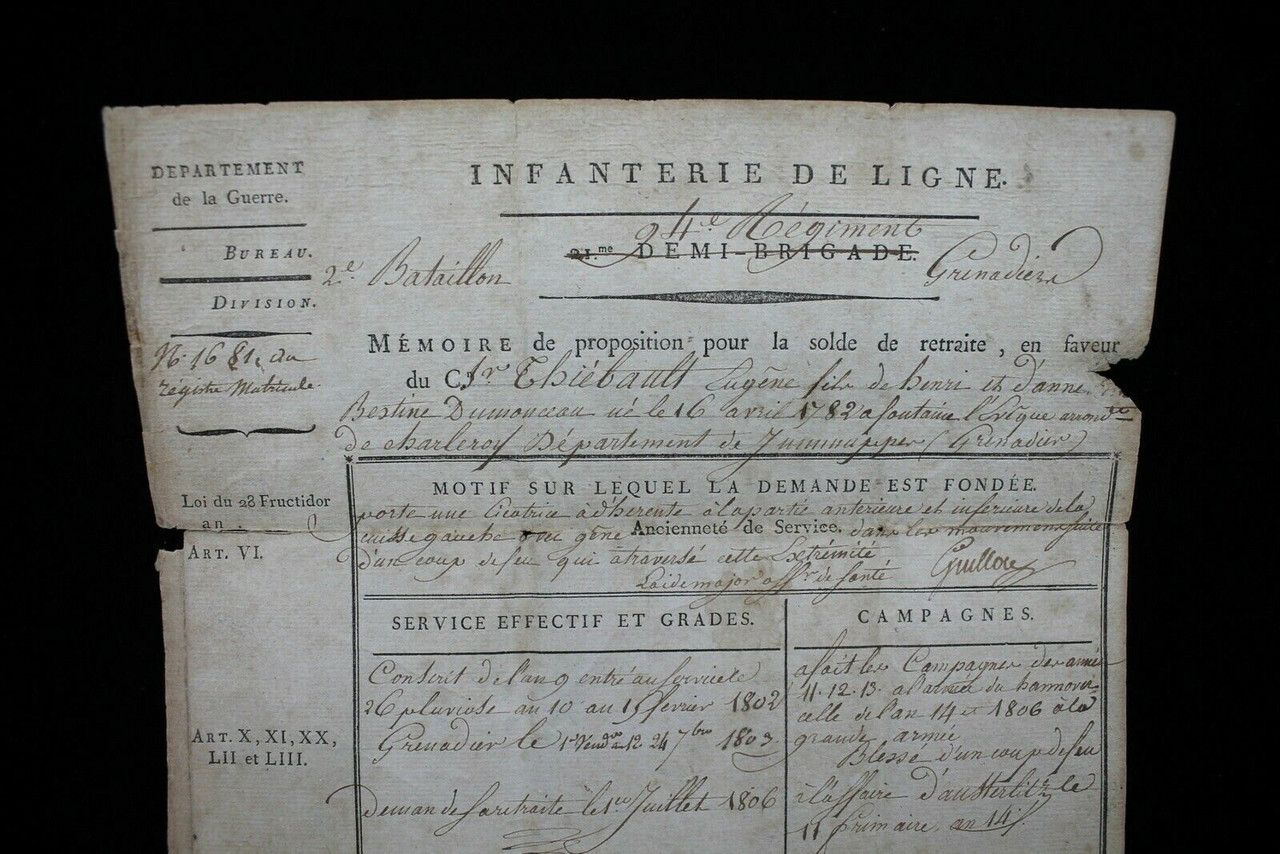 DEPARTEMENT
de la Guerre.
BUREAU.
DIVISION.
N.º 1681. du
registre Matricule.
INFANTERIE DE LIGNE.
94.e Régiment
21.me DEMI-BRIGADE.
2.e Bataillon
Grenadier
MÉMOIRE de proposition pour la solde de retraite, en faveur
du C. Sr Thiébault Eugêne fils de henri et d'anne
Bestine Dumonceau né le 16 avril 1782 a fontaine l'Evêque arrondt
de charleroy Département de Jemmappes (Grenadier)
Loi du 28 Fructidor
an .
ART. VI.
MOTIF SUR LEQUEL LA DEMANDE EST FONDÉE.
porte une Cicatrice adhérente à la partie antérieure et inférieure de la
cuisse gauche gêne Ancienneté de Service. dans les mouvements suite
d'un coup de feu qui a traversé cette Extrémité
L'aide major offr de santé
SERVICE EFFECTIF ET GRADES.
ART. X, XI, XX,
LII et LIII.
Conscrit de l'an 9 entré au service le
26 pluviose an 10 au 15 février 1802
Grenadier le 1er Vendre an 12 24 7bre 1803
demande sa retraite le 1er Juillet 1806
CAMPAGNES.
a fait les Campagnes des années
11. 12. 13. a l'armée du hannovre
celle de l'an 14 et 1806 à la
grande armée
Blessé d'un coup de feu
à l'affaire d'austterlitz le
11 frimaire an 14